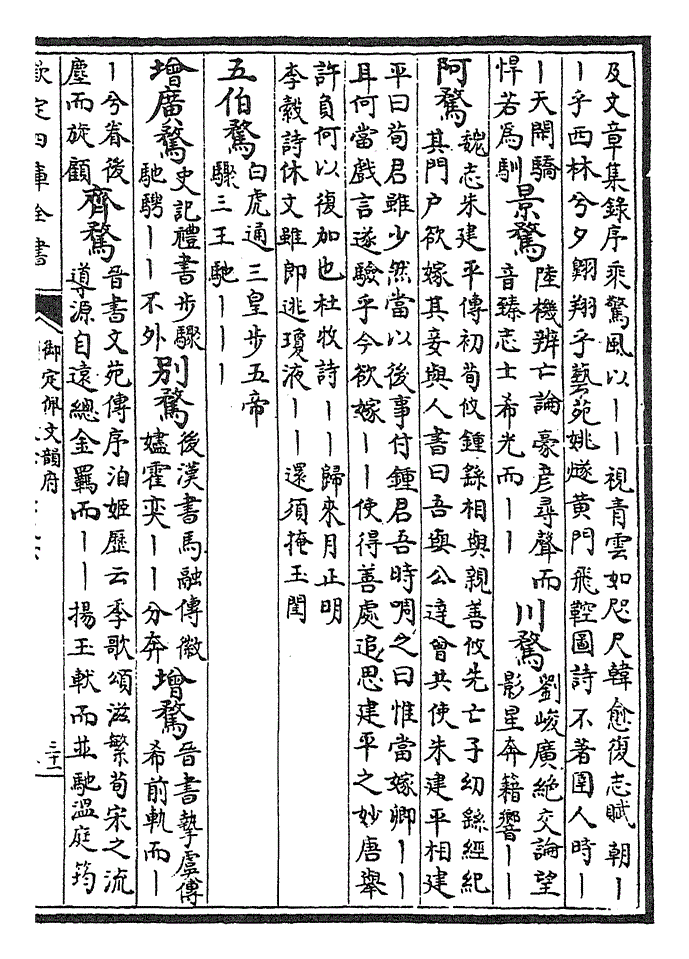 及文章集錄序乘驚風以丨丨視青雲如咫尺韓愈復志賦朝丨
丨乎西林兮夕翺翔乎藝苑姚燧黃門飛鞚圖詩不著圉人時丨
丨天閑驕
悍若為馴
景騖
陸機辨亡論豪彦尋聲而
音臻志士希光而丨丨
川騖
劉峻廣絶交論望
影星奔籍響丨丨
阿騖
魏志朱建平傳初荀攸鍾繇相與親善攸先亡子幼繇經紀
其門户欲嫁其妾與人書曰吾與公達曾共使朱建平相建
平曰荀君雖少然當以後事付鍾君吾時啁之曰惟當嫁卿丨丨
耳何當戲言遂驗乎今欲嫁丨丨使得善處追思建平之妙唐舉
許負何以復加也杜牧詩丨丨歸來月正明
李縠詩休文雖即逃瓊液丨丨還須掩玉閨
五伯騖
白虎通三皇步五帝
驟三王馳丨丨丨
增廣騖
史記禮書步驟
馳騁丨丨不外
別騖
後漢書馬融傳徽
嫿霍奕丨丨分奔
增騖
晉書摯虞傳
希前軌而丨
丨兮眷後
塵而旋顧
齊騖
晉書文苑傳序洎姬歷云季歌頌滋繁荀宋之流
導源自遠總金羈而丨丨揚玉軑而並馳溫庭筠
欽定四庫全書
御定佩文韻府
三十一